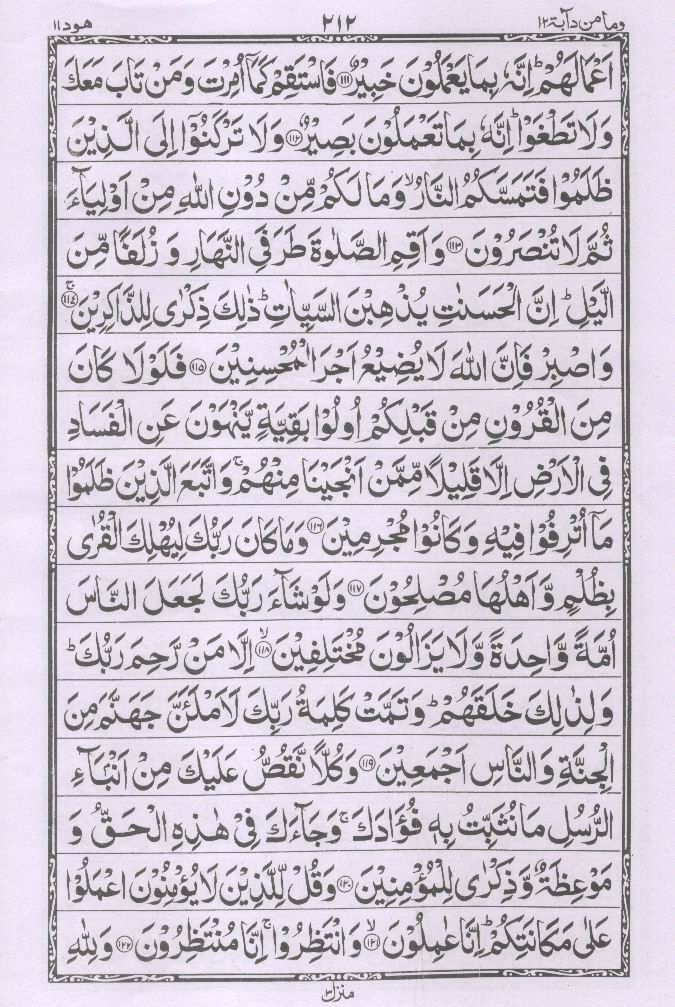 وما من دآبة ١٢
٢١٢
هود ١١
اَعْمَالَهُمْ ؕ اِنَّهٗ بِمَا يَعْمَلُوْنَ خَبِيْرٌ ﴿۱۱۱﴾ فَاسْتَقِمْ كَمَاۤ اُمِرْتَ وَمَنْ تَابَ مَعَكَ
وَلَا تَطْغَوْا ؕ اِنَّهٗ بِمَا تَعْمَلُوْنَ بَصِيْرٌ ﴿۱۱۲﴾ وَلَا تَرْكَنُوْۤا اِلَى الَّذِيْنَ
ظَلَمُوْا فَتَمَسَّكُمُ النَّارُ ۙ وَمَا لَكُمْ مِّنْ دُوْنِ اللّٰهِ مِنْ اَوْلِيَآءَ
ثُمَّ لَا تُنْصَرُوْنَ ﴿۱۱۳﴾ وَاَقِمِ الصَّلٰوةَ طَرَفَيِ النَّهَارِ وَ زُلَفًا مِّنَ
الَّيْلِ ؕ اِنَّ الْحَسَنٰتِ يُذْهِبْنَ السَّيِّاٰتِ ؕ ذٰلِكَ ذِكْرٰى لِلذّٰكِرِيْنَ ۚ ﴿۱۱٤﴾
وَاصْبِرْ فَاِنَّ اللّٰهَ لَا يُضِيْعُ اَجْرَ الْمُحْسِنِيْنَ ﴿۱۱۵﴾ فَلَوْ لَا كَانَ
مِنَ الْقُرُوْنِ مِنْ قَبْلِكُمْ اُولُوْا بَقِيَّةٍ يَّنْهَوْنَ عَنِ الْفَسَادِ
فِى الْاَرْضِ اِلَّا قَلِيْلًا مِّمَّنْ اَنْجَيْنَا مِنْهُمْ ۚ وَاتَّبَعَ الَّذِيْنَ ظَلَمُوْا
مَاۤ اُتْرِفُوْا فِيْهِ وَكَانُوْا مُجْرِمِيْنَ ﴿۱۱٦﴾ وَمَا كَانَ رَبُّكَ لِيُهْلِكَ الْقُرٰى
بِظُلْمٍ وَّاَهْلُهَا مُصْلِحُوْنَ ﴿۱۱۷﴾ وَلَوْ شَآءَ رَبُّكَ لَجَعَلَ النَّاسَ
اُمَّةً وَّاحِدَةً وَّلَا يَزَالُوْنَ مُخْتَلِفِيْنَ ۙ ﴿۱۱۸﴾ اِلَّا مَنْ رَّحِمَ رَبُّكَ ؕ
وَلِذٰلِكَ خَلَقَهُمْ ؕ وَتَمَّتْ كَلِمَةُ رَبِّكَ لَاَمْلَـَٔنَّ جَهَنَّمَ مِنَ
الْجِنَّةِ وَالنَّاسِ اَجْمَعِيْنَ ﴿۱۱۹﴾ وَكُلًّا نَّقُصُّ عَلَيْكَ مِنْ اَنْۢبَآءِ
الرُّسُلِ مَا نُثَبِّتُ بِهٖ فُؤَادَكَ ۚ وَجَآءَكَ فِىْ هٰذِهِ الْحَقُّ وَ
مَوْعِظَةٌ وَّذِكْرٰى لِلْمُؤْمِنِيْنَ ﴿۱۲۰﴾ وَقُلْ لِّلَّذِيْنَ لَا يُؤْمِنُوْنَ اعْمَلُوْا
عَلٰى مَكَانَتِكُمْ ؕ اِنَّا عٰمِلُوْنَ ۙ ﴿۱۲۱﴾ وَانْتَظِرُوْا ۚ اِنَّا مُنْتَظِرُوْنَ ﴿۱۲۲﴾ وَلِلّٰهِ
منزل ٣